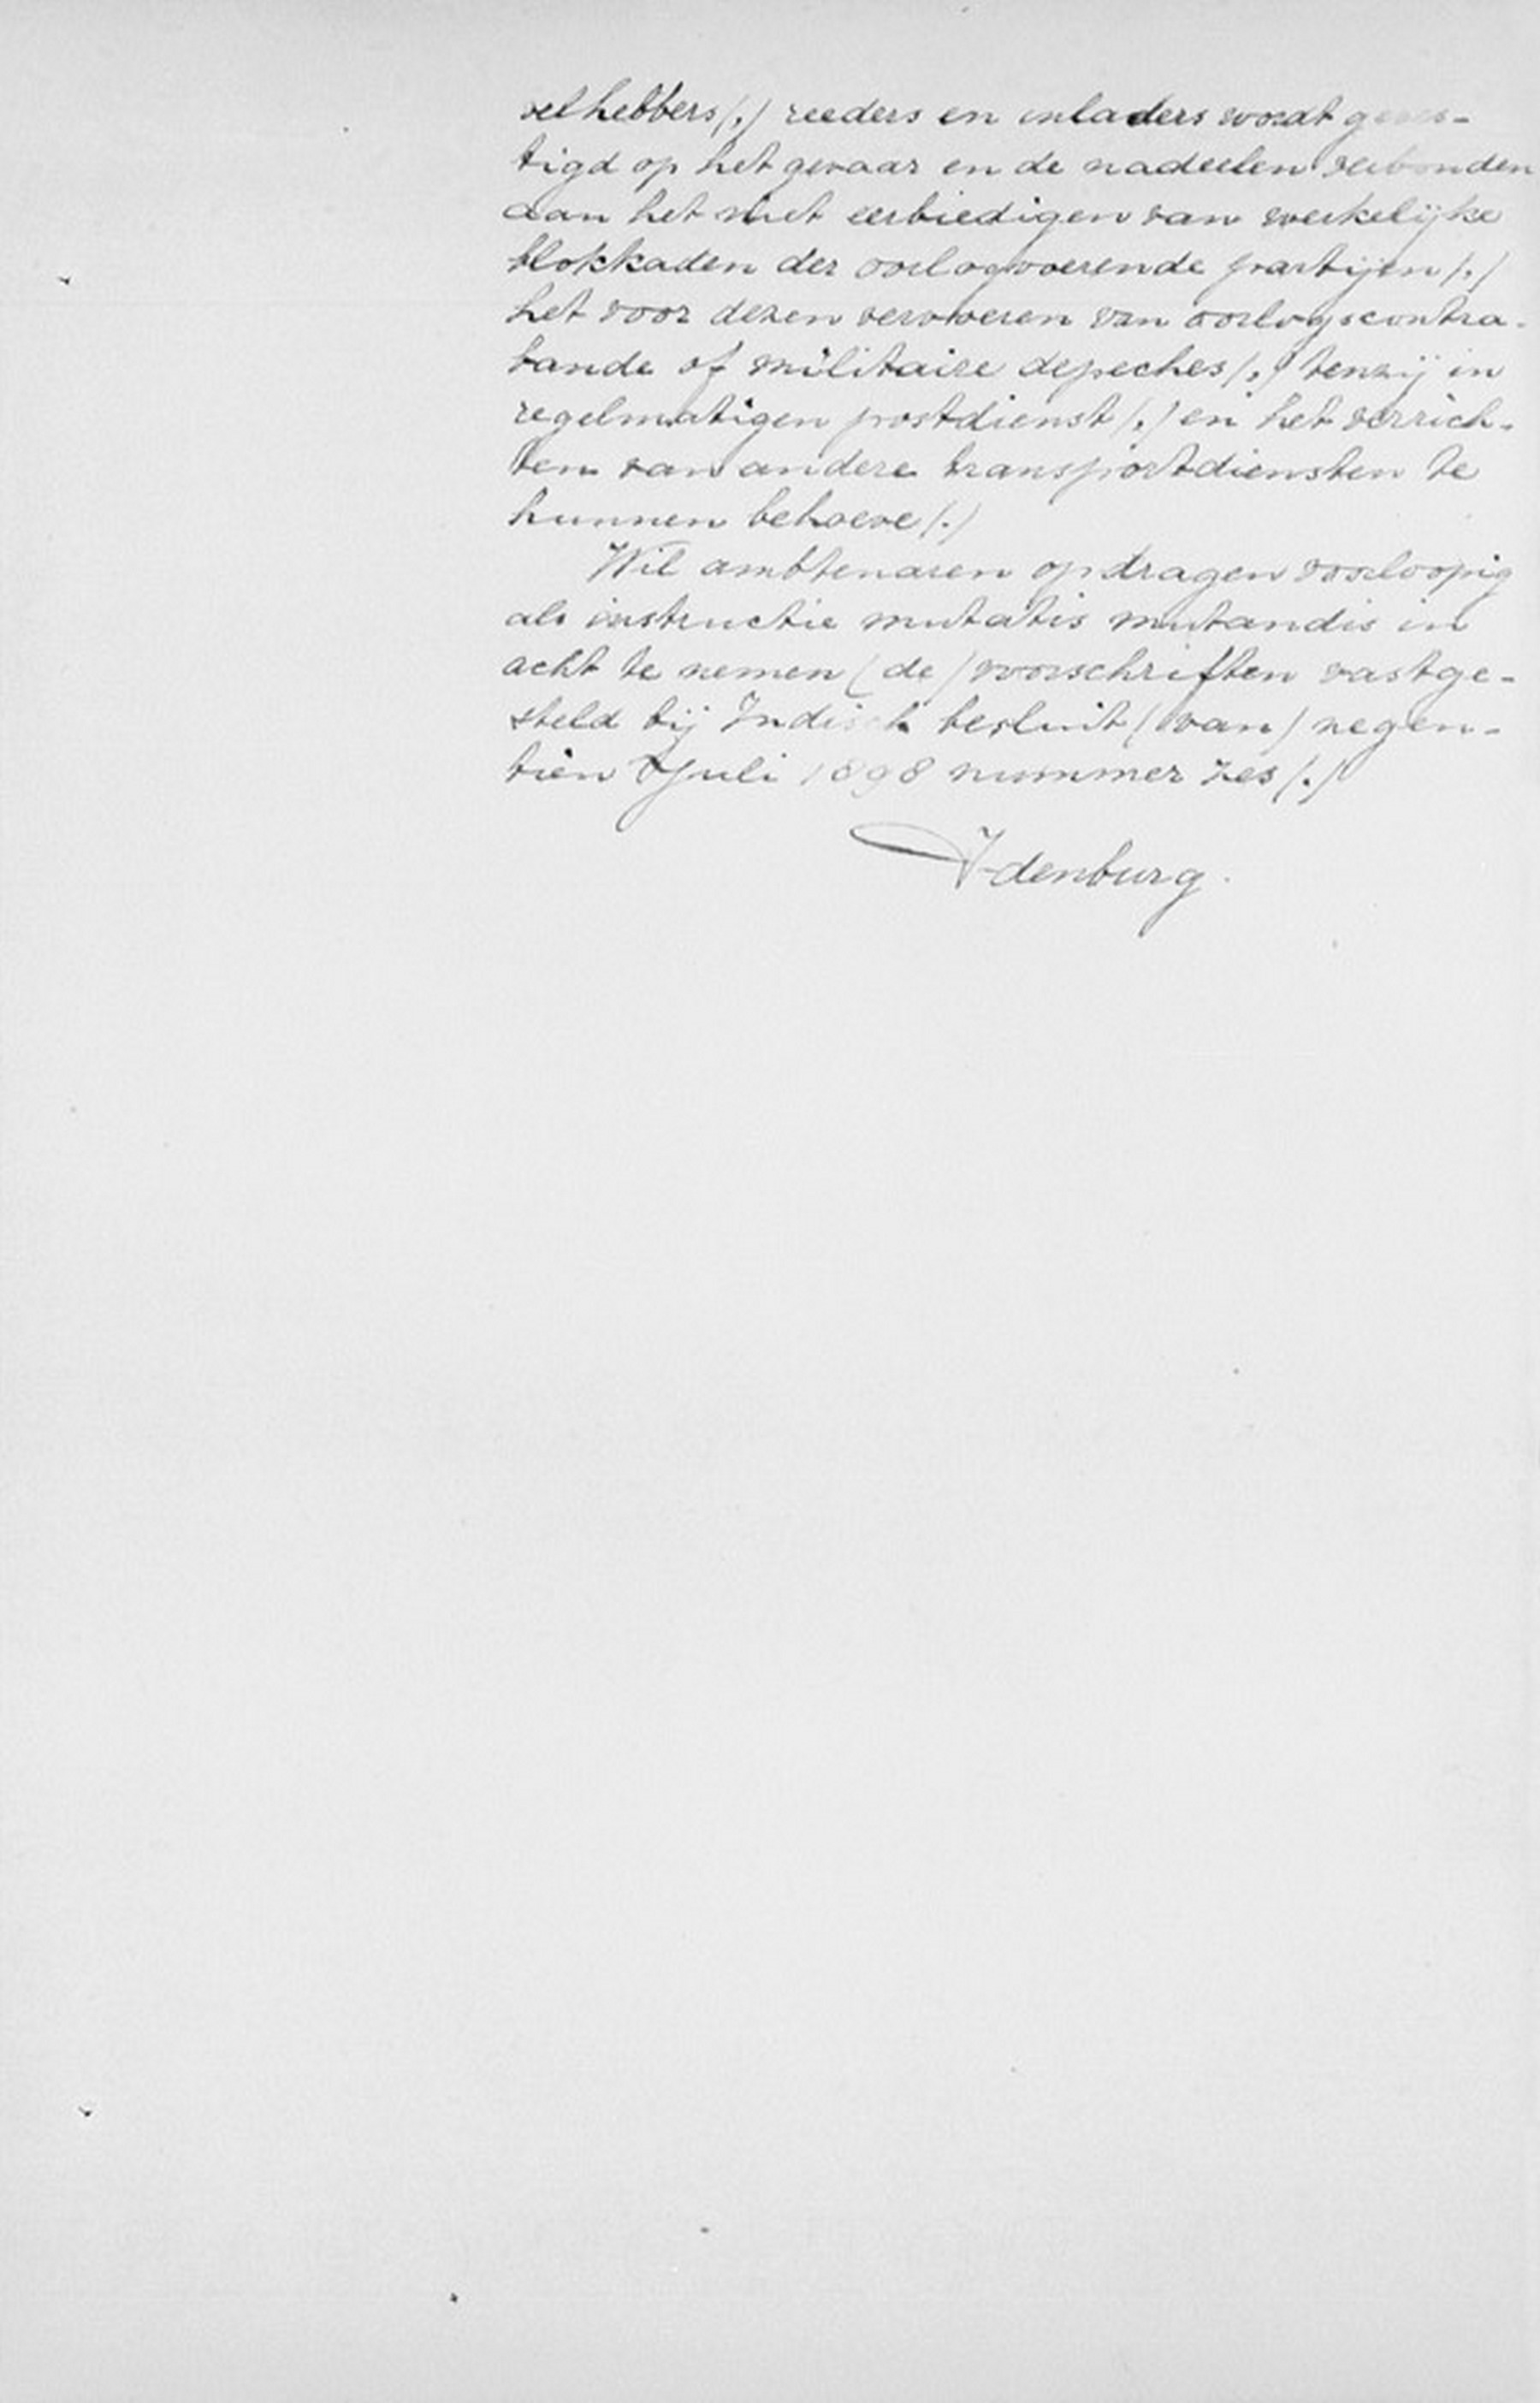 velhebbers (,) reeders en inladers wordt geves-
tigd op het gevaar en de nadeelen verbonden
aan het niet eerbiedigen van werkelijke
blokkaden der oorlogvoerende partijen (,)
het voor dezen vervoeren van oorlogscontra-
bande of militaire depeches (,) tenzij in
regelmatigen postdienst (,) en het verrich-
ten van andere transportdiensten te
hunnen behoeve (.)
Wil ambtenaren opdragen voorloopig
als instructie mutatis mutandis in
acht te nemen (de) voorschriften vastge-
steld bij Indisch besluit (van) negen-
tien Juli 1898 nummer zes (.)
Idenburg.